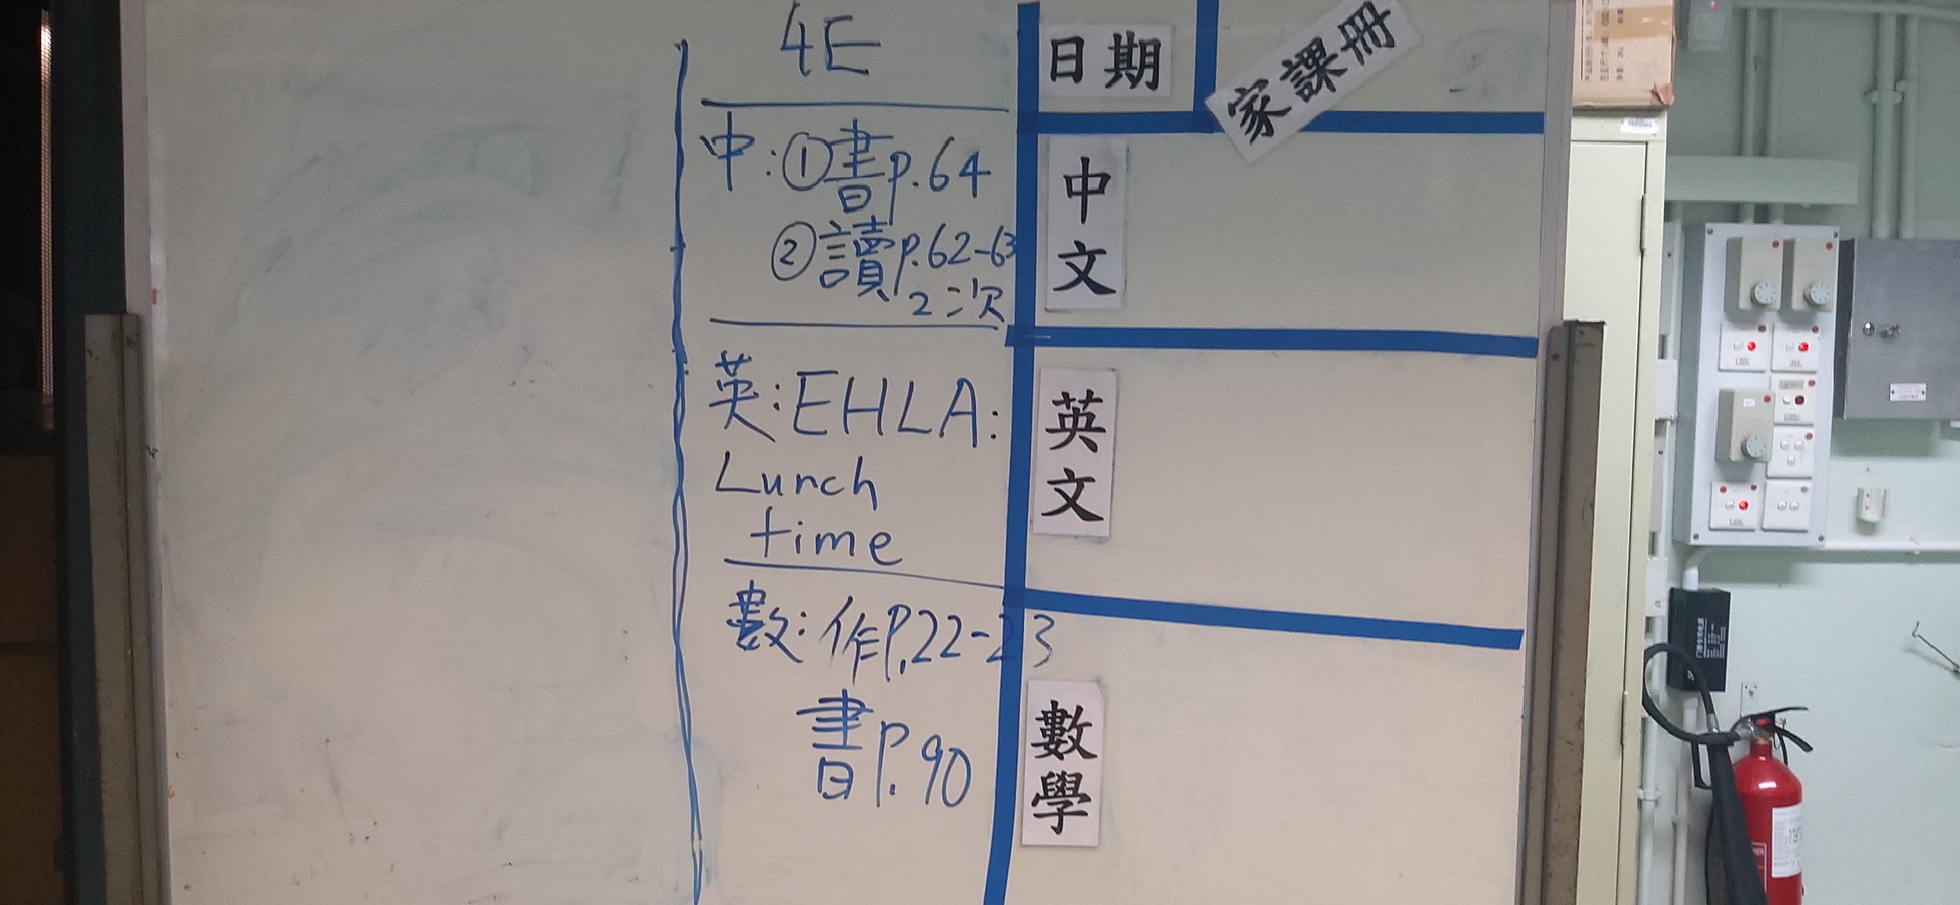 4E
中:①書p.64
②讀p.62-63
2次
英:EHLA:
Lunch
time
數:作P.22-23
書P.90
日期
家課冊
中文
英文
數學